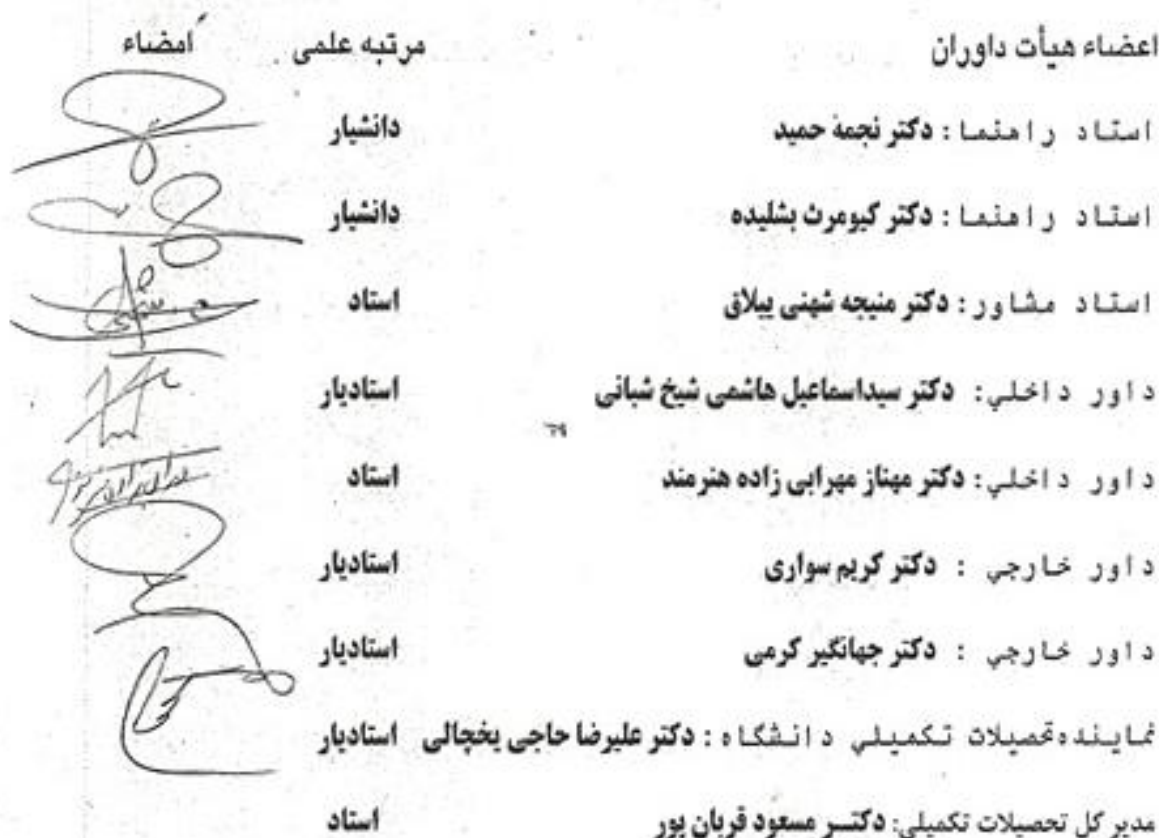 اعضاء هیأت داوران مرتبه علمی امضاء
استاد راهنما: دکتر نجمه حمید دانشیار
استاد راهنما: دکتر کیومرث بشلیده دانشیار
استاد مشاور: دکتر منیجه شهنی ییلاق استاد
داور داخلي: دکتر سیداسماعیل هاشمی شیخ شبانی استادیار
داور داخلي: دکتر مهناز مهرابی زاده هنرمند استاد
داور خارجي : دکتر کریم سواری استادیار
داور خارجي : دکتر جهانگیر کرمی استادیار
نماینده تحصیلات تکمیلي دانشگاه : دکتر علیرضا حاجی یخچالی استادیار
مدیر کل تحصیلات تکمیلی: دکتـر مسعود قربان پور استاد